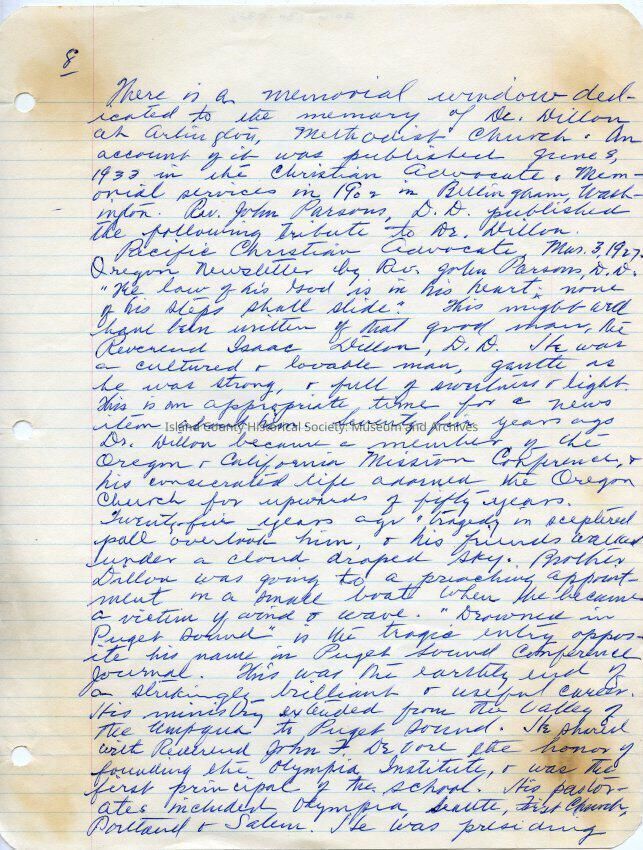 8
There is a memorial window ded-
icated to the memory of Dr. Dillon
at Arlington, Methodist Church. An
account of it was published June 8,
1933 in the Christian Advocate. Mem-
orial services in 1902 in Bellingham, Wash-
ington. Rev. John Parsons, D.D. published
the following tribute to Dr. Dillon.
Pacific Christian Advocate, Mar. 3, 1927.
Oregon Newsletter by Rev. John Parsons, D.D.
"The law of his God is in his heart, none
of his steps shall slide". This might well
have been written of that good man, the
Reverend Isaac Dillon, D.D. He was
a cultured & lovable man, gentle as
he was strong, & full of sweetness & light.
This is an appropriate time for a news
item about him. years ago
Island County Historical Society, Museum and Archives
Dr. Dillon became a member of the
Oregon & California Mission Conference, &
his consecrated life adorned the Oregon
Church for upwards of fifty years.
Twenty-five years ago "tragedy in sceptered
pall overtook him, & his friends walked
under a cloud draped sky. Brother
Dillon was going to a preaching appoint-
ment in a small boat when he became
a victim of wind & wave. "Drowned in
Puget Sound" is the tragic entry oppos-
ite his name in Puget Sound Conference
Journal. This was the earthly end of
a strikingly brilliant & useful career.
His ministry extended from the Valley of
the Umpqua to Puget Sound. He shared
wit Reverend John F. De Vore the honor of
founding the Olympia Institute, & was the
first principal of the school. His pastor-
ates included Olympia Seattle First Church,
Portland & Salem. He was presiding